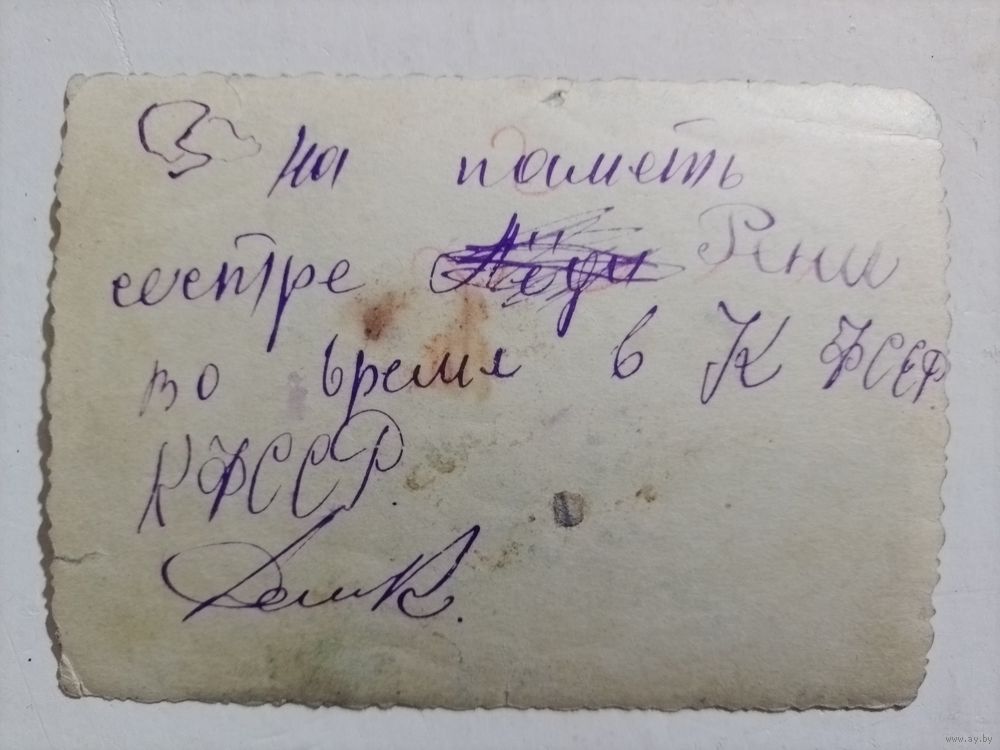 на паметь
сестре Рени
во время в К ФССР
КФССР.
www.ay.by